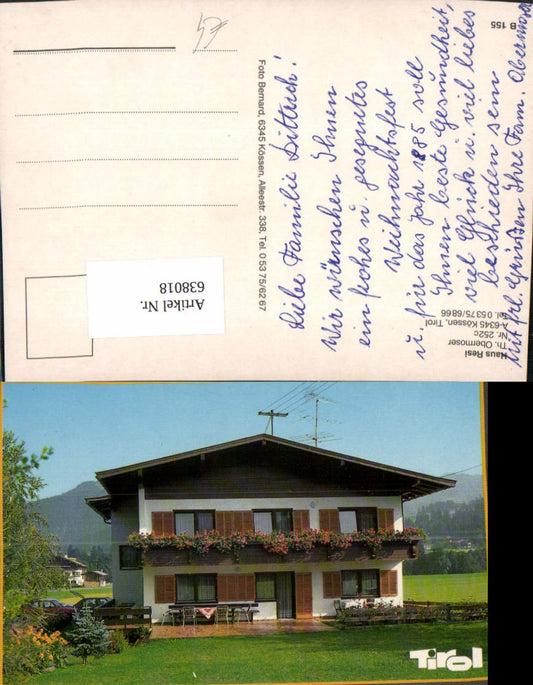 Liebe Familie Dittrich!
Wir wünschen Ihnen
ein frohes u. gesegnetes
Weihnachtsfest
u. für das Jahr 1985 soll
Ihnen beste Gesundheit,
viel Glück u. viel liebes
beschieden sein
Mit frl. Grüßen Ihre Fam. Obermoser
Foto Bernard, 6345 Kössen, Alleestr. 338, Tel. 0 53 75/62 67
B 155
Haus Resi
Th. Obermoser
Nr. 252c
A-6345 Kössen, Tirol
Tel. 05375/6866
Artikel Nr.
638018
Tirol